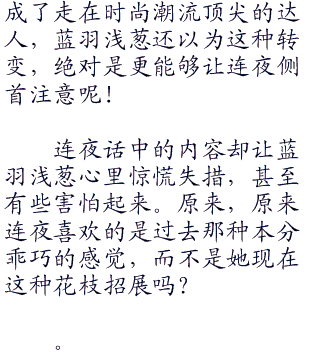 成了走在时尚潮流顶尖的达
人，蓝羽浅葱还以为这种转
变，绝对是更能够让连夜侧
首注意呢！
连夜话中的内容却让蓝
羽浅葱心里惊慌失措，甚至
有些害怕起来。原来，原来
连夜喜欢的是过去那种本分
乖巧的感觉，而不是她现在
这种花枝招展吗？
。